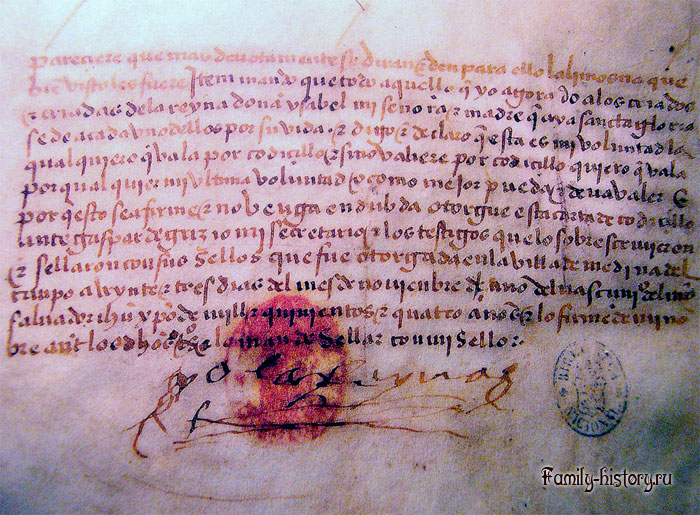 pareciere que mas devotamente se diran e den para ello la limosna que
bie visto les fuere Item mando que todo aquello q yo agora do a los criados
e criadas dela reyna dona ysabel mi senora e madre q aya sancta gloria
se de a cada uno dellos por su vida · e digo e declaro q esta es mi voluntad la
qual quiero q vala por codicillo e si no valiere por codicillo quiero q vala
por qual quier mi ultima voluntad o como mejor pueda e deva valer E
por q esto sea firme e no venga en dubda otorgue esta carta de codicillo
ante gaspar de grizio mi secretario e los testigos que lo sobrescrivieron
e sellaron con sus sellos que fue otorgada en la villa de medina del
campo a veynte e tres dias del mes de noviembre de ano del nascimio del nro
salvador ihu xpo de mill e quinientos e quatro anos e lo firme de mi no
bre ant los dhos tos e lo mande sellar con mi sello ·
yo la Reyna
BIBLIOTECA NACIONAL
Family-history.ru